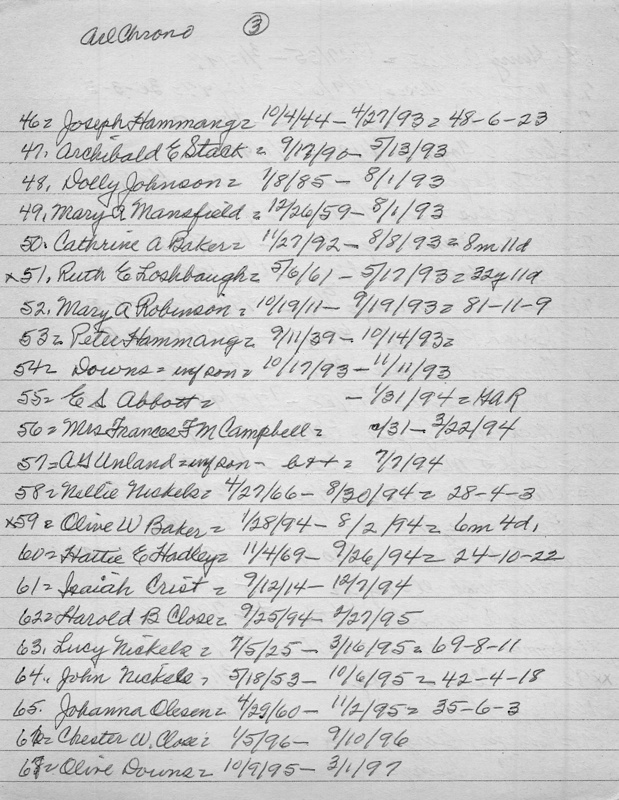 Arl Chrono ③
46= Joseph Hammang= 10/4/44 - 4/27/93= 48-6-23
47. Archibald E Stack = 9/17/90- 5/13/93
48. Dolly Johnson= 1/8/85 - 8/1/93
49. Mary A Mansfield = 12/26/59- 8/1/93
50. Cathrine A Baker= 11/27/92 - 8/8/93= 8m 11d
x51. Ruth E Loshbaugh= 5/6/61 - 5/17/93= 32y 11d
52. Mary A Robinson = 10/19/11- 9/19/93= 81-11-9
53= Peter Hammang= 9/11/39- 10/14/93=
54= Downs= inf son= 10/17/93- 11/11/93
55= E S Abbott= - 1/31/94= GAR
56= Mrs Frances F M Campbell= /31- 3/22/94
57= A G Unland= inf son- b++= 7/7/94
58= Nellie Nickels= 4/27/66- 8/30/94= 28-4-3
x59= Olive W Baker= 1/28/94- 8/2/94= 6m 4d.
60= Hattie E Hadley= 11/4/69- 9/26/94= 24-10-22
61= Isaiah Crist = 9/12/14- 12/7/94
62= Harold B Close= 9/25/94- 2/27/95
63. Lucy Nickels= 7/5/25- 3/16/95= 69-8-11
64. John Nickels = 5/18/53- 10/6/95= 42-4-18
65. Johanna Olesen= 4/29/60- 11/2/95= 35-6-3
66= Chester W. Close= 1/5/96- 9/10/96
67= Olive Downs= 10/9/95- 3/1/97